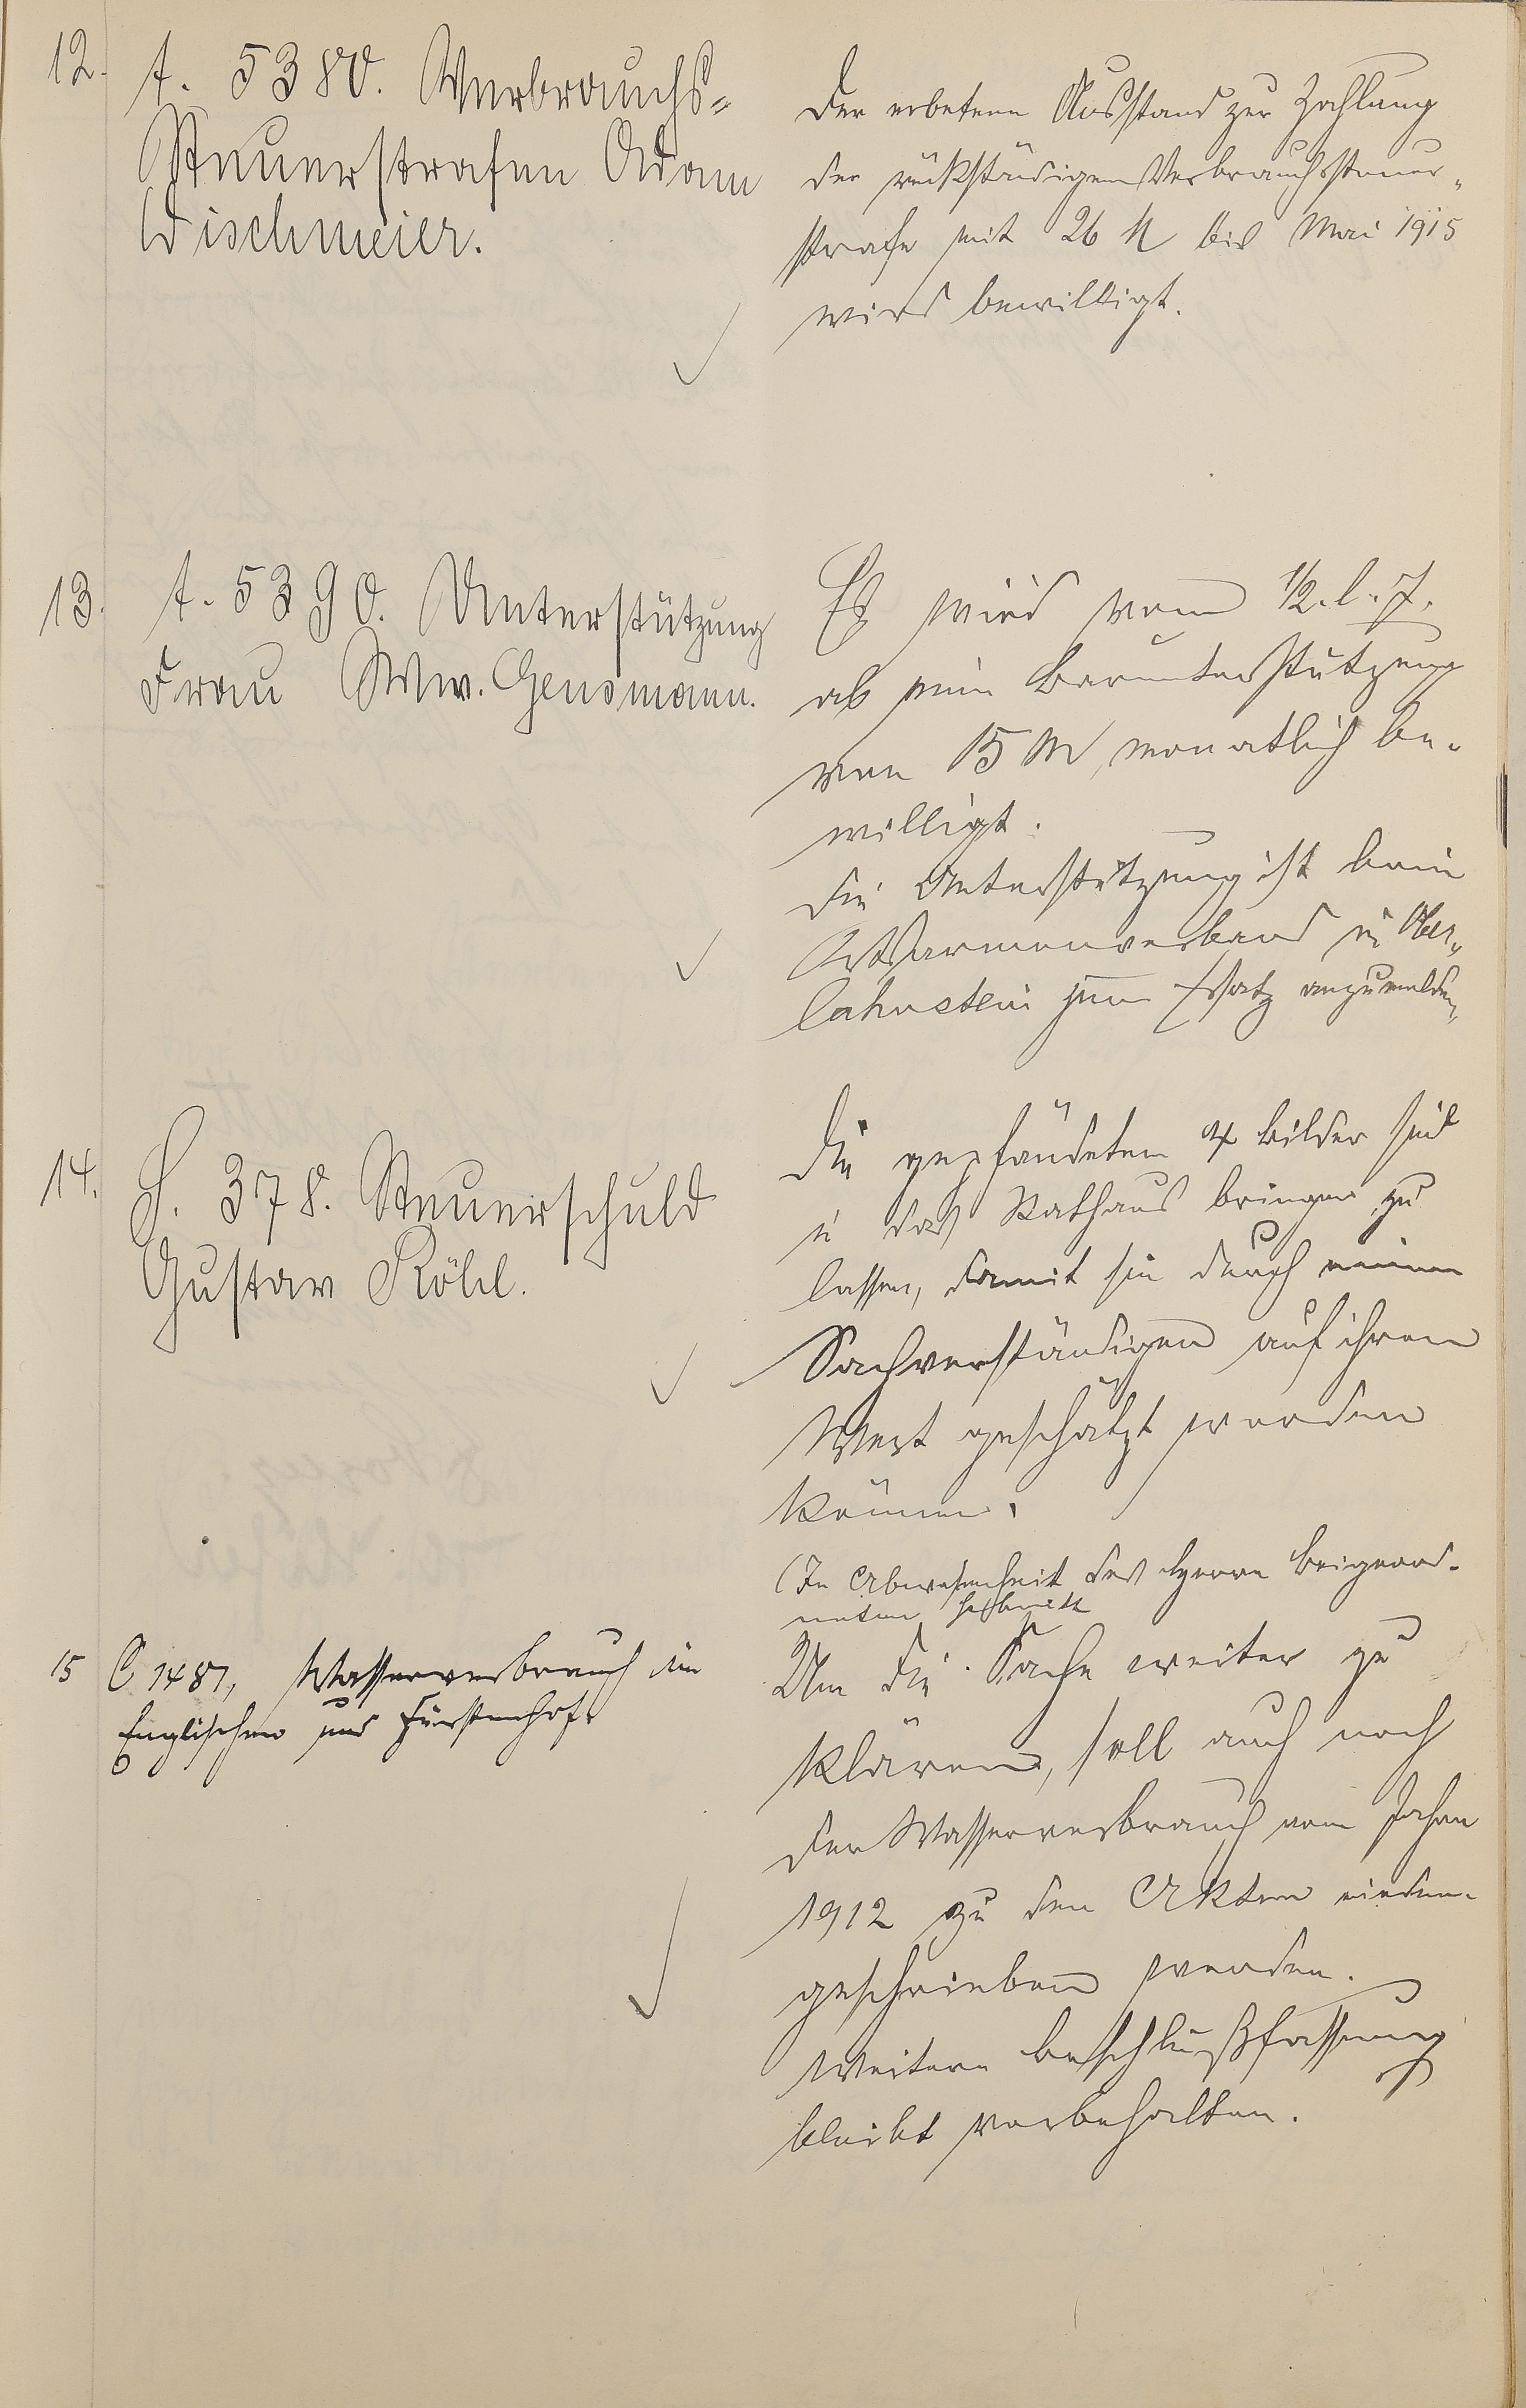 12. A. 5380. Verbrauchs-
Steuerstrafen Adam
Wischmeier.
Der erbetene Ausstand zur Zahlung
der rückständigen Verbrauchssteuer-
strafe mit 26 M bis Mai 1915
wird bewilligt.
13. A. 5390. Unterstützung
Frau Ww. Gensmann.
Es wird vom 1/2. l. J.
ab eine Barunterstützung
von 15 M, monatlich be-
willigt.
Die Unterstützung ist beim
Ortsarmenverband in Ober-
lahnstein zum Ersatz anzumelden,
14. S. 378. Steuerschuld
Gustav Röhl.
Die gepfändeten 4 Bilder sind
in das Rathaus bringen zu
lassen, damit sie durch einen
Sachverständigen auf ihren
Wert geschätzt werden
können.
(In Abwesenheit des Herrn Beigeord-
neten
15 C 1481, Wasserverbrauch im
Englischen und Fürstenhof.
Um die Sache weiter zu
klären, soll auch noch
der Wasserverbrauch vom Jahre
1912 zu den Akten
geschrieben werden.
Weitere Beschlußfassung
bleibt vorbehalten.